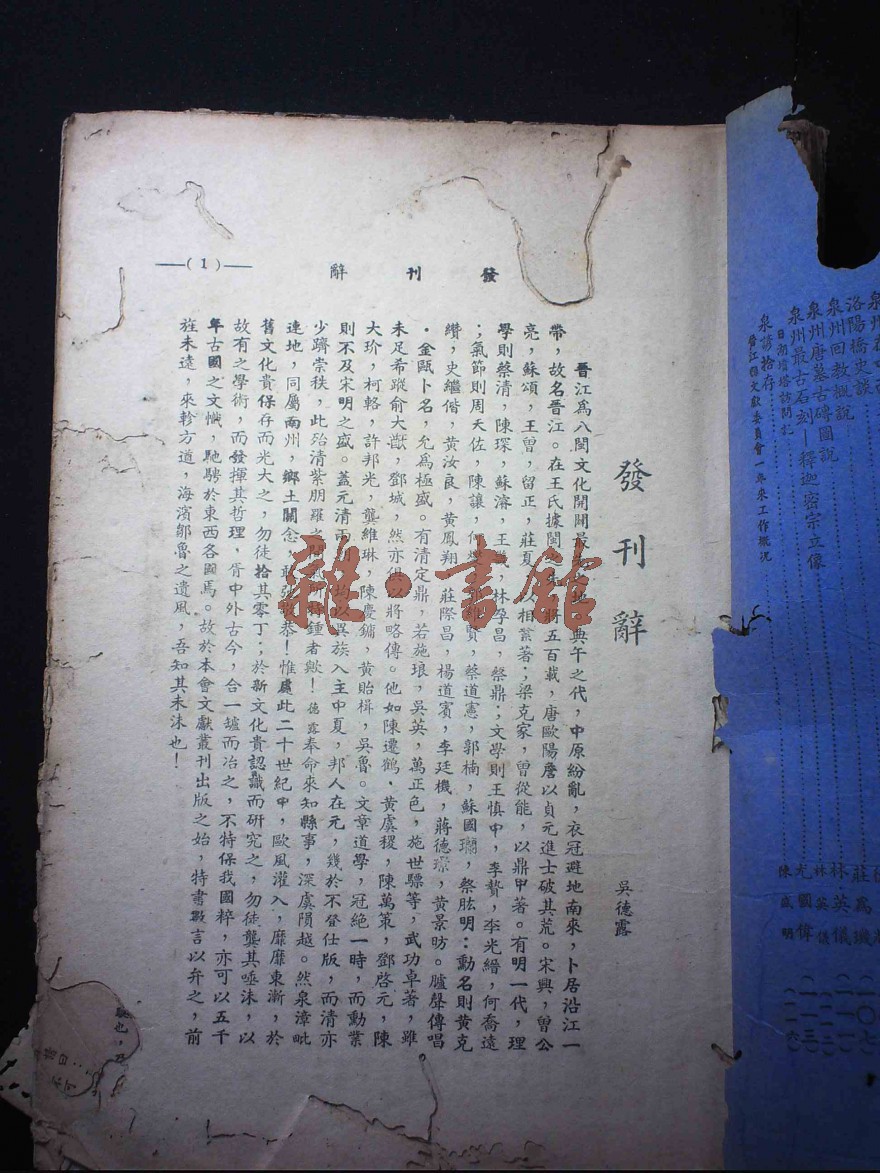 泉州唐墓古磚圖說
泉州回教概說
洛陽橋史談
泉州最古石刻—釋迦密宗立像
日湖塔訪問記
泉諺拾存
晉江縣文獻委員會一年來工作概況
莊為璣
林英儀
林英儀
尤國偉
陳盛明
發刊辭
—(1)—
發刊辭
吳德露
晉江為八閩文化開闢最之地。典午之代，中原紛亂，衣冠避地南來，卜居沿江一
帶，故名晉江。在王氏據閩之將五百載，唐歐陽詹以貞元進士破其荒。宋興，曾公
亮，蘇頌，王曾，留正，莊夏，以相業著；梁克家，曾從龍，以鼎甲著。有明一代，理
學則蔡清，陳琛，蘇濬，王，林孚昌，蔡鼎；文學則王慎中，李贄，李光縉，何喬遠
；氣節則周天佐，陳讓，何賢，蔡道憲，郭楠，蘇國瓛，蔡肱明：勳名則黃克
纘，史繼偕，黃汝良，黃鳳翔，莊際昌，楊道賓，李廷機，蔣德璟，黃景昉。臚聲傳唱
，金甌卜名，允為極盛。有清定鼎，若施琅，吳英，萬正色，施世驃等，武功卓著，雖
未足希蹤俞大猷，鄧城，然亦俱以將略傳。他如陳遷鶴，黃虞稷，陳萬策，鄧啓元，陳
大玠，柯輅，許邦光，龔維琳，陳慶鏞，黃貽楫，吳魯。文章道學，冠絕一時，而勳業
則不及宋明之盛。蓋元清兩均以異族入主中夏，邦人在元，幾於不登仕版，而清亦
少躋崇秩，此殆清紫朋羅之間氣所特鍾者歟！德露奉命來知縣事，深虞隕越。然泉漳毗
連地，同屬南州，鄉土關念，敢弛敬恭！惟處此二十世紀中，歐風灌入，靡靡東漸，於
舊文化貴保存而光大之，勿徒拾其零丁；於新文化貴認識而研究之，勿徒襲其唾沫，以
故有之學術，而發揮其哲理，胥中外古今，合一爐而冶之，不特保我國粹，亦可以五千
年古國之文幟，馳騁於東西各國焉。故於本會文獻叢刊出版之始，特書數言以弁之，前
旌未遠，來軫方遒，海濱鄒魯之遺風，吾知其未沬也！
雜·書館